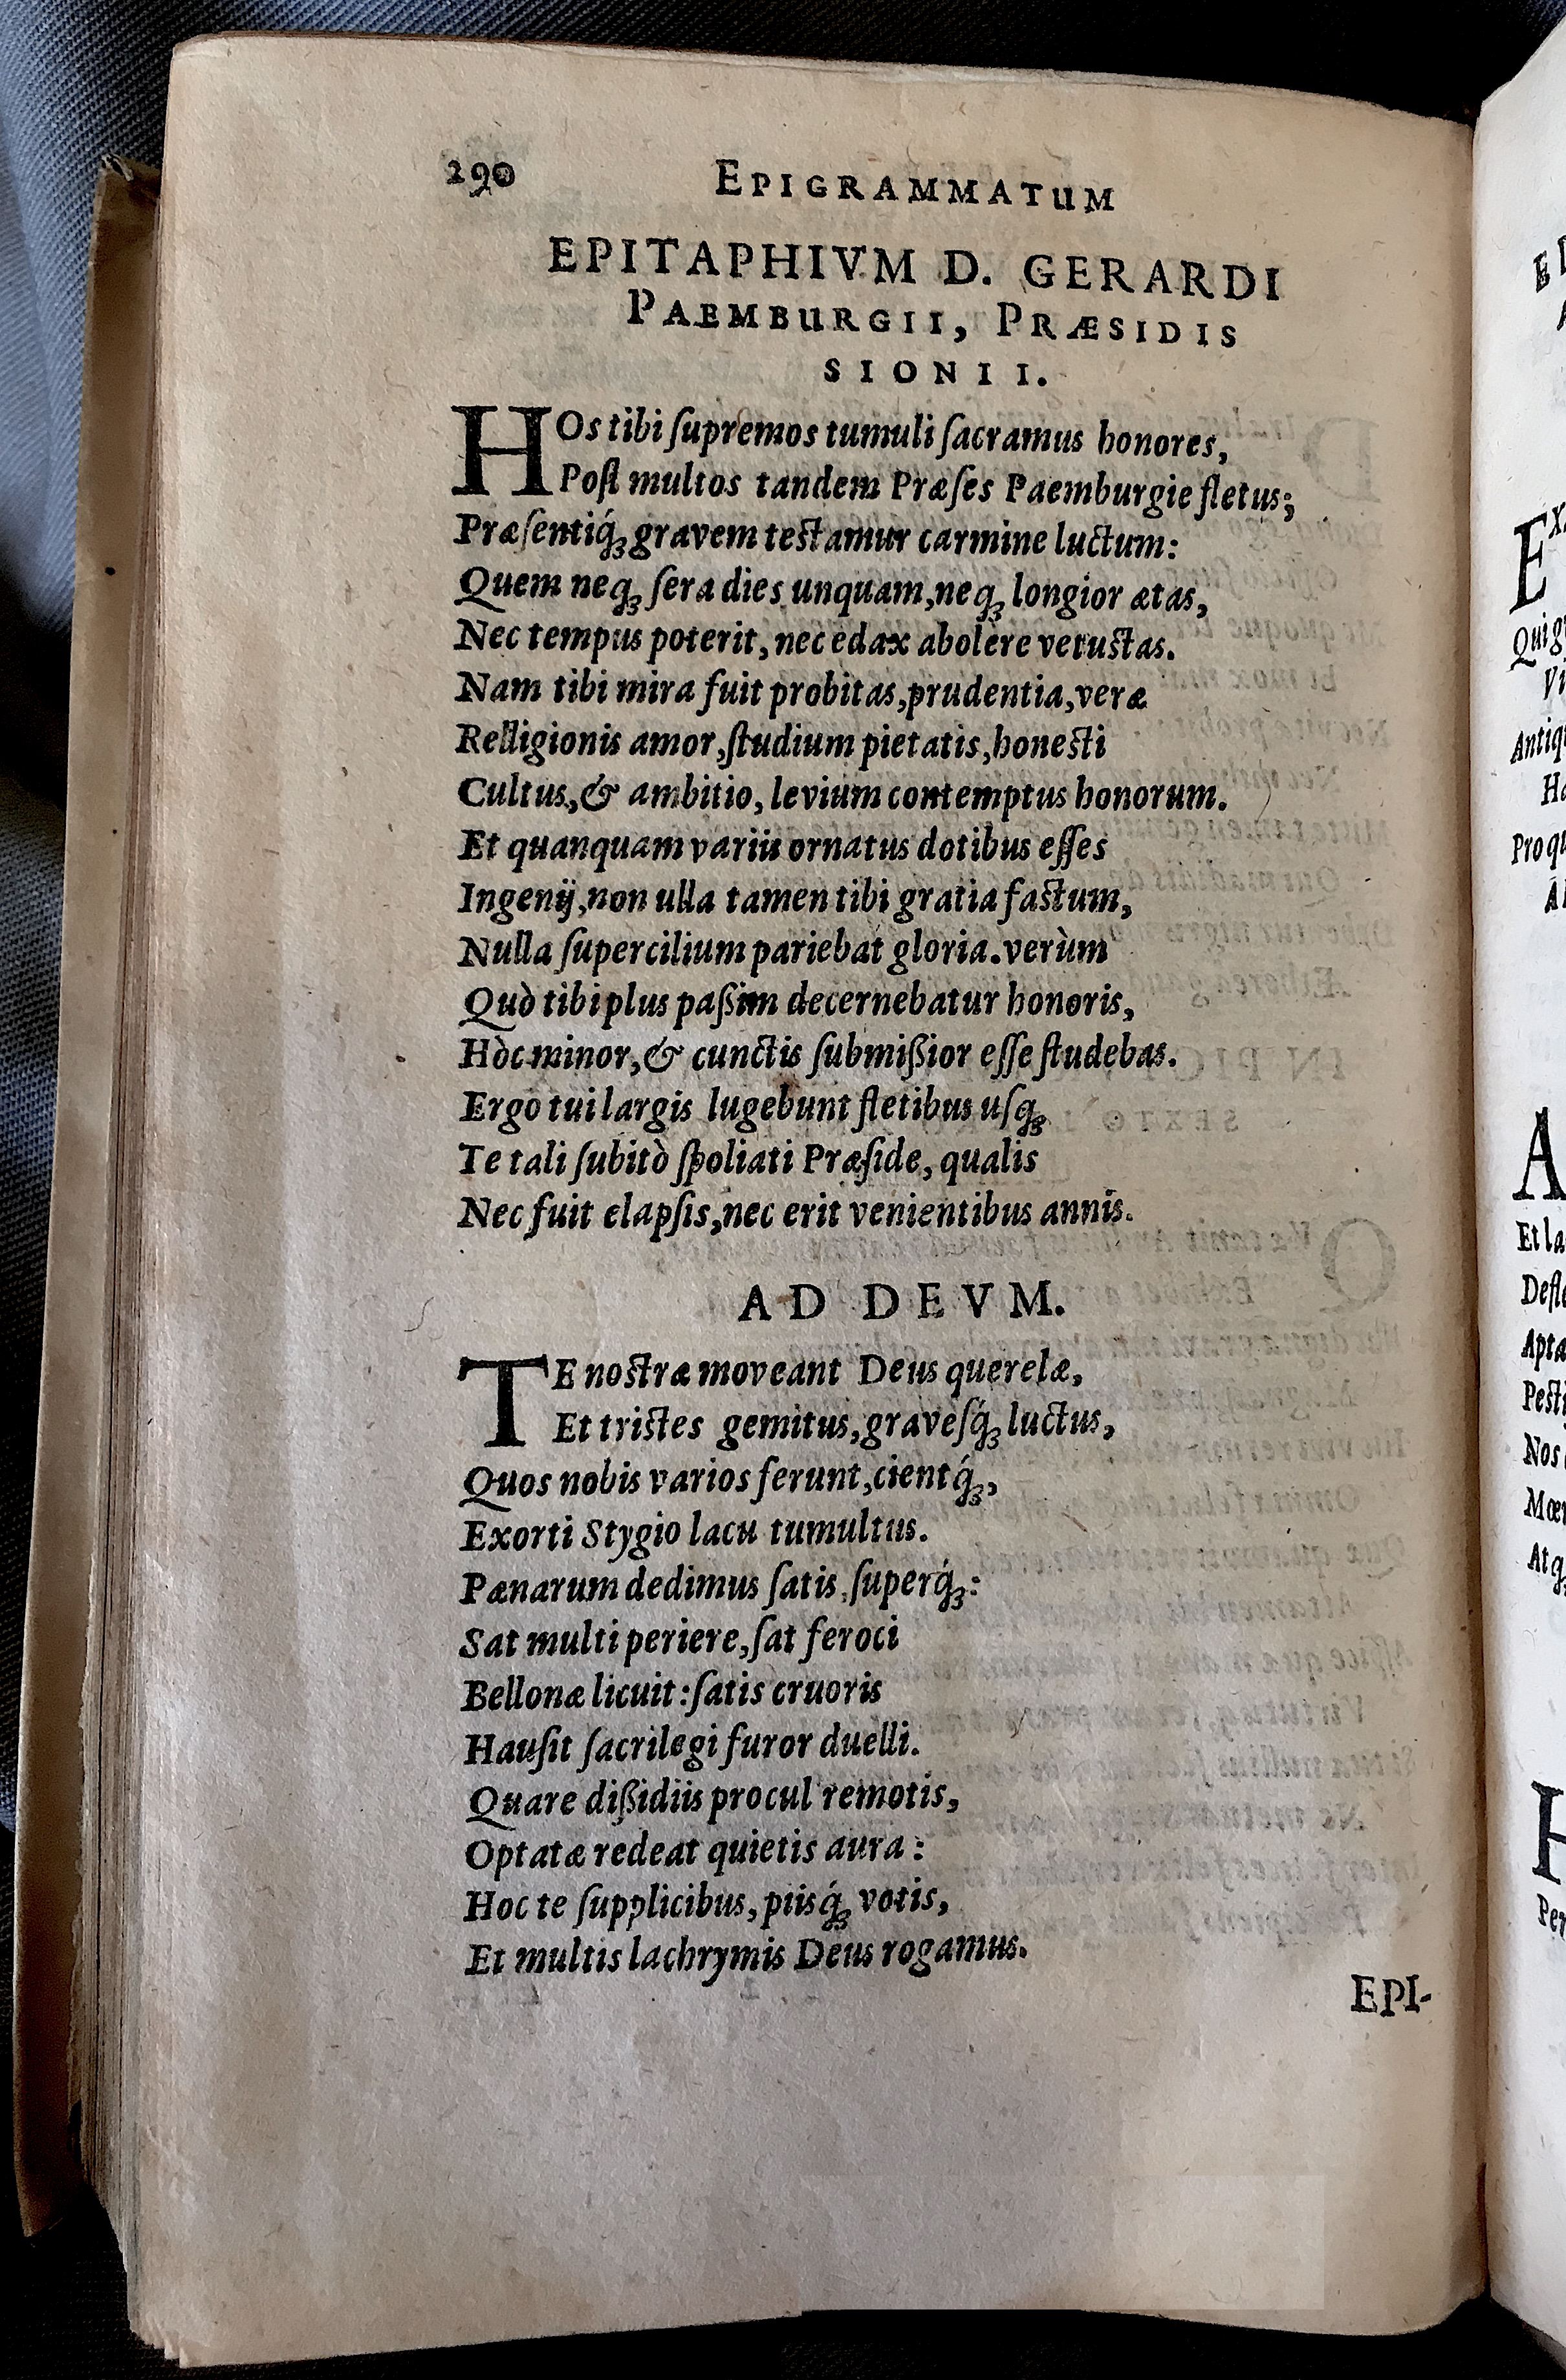 290 EPIGRAMMATUM
EPITAPHIVM D. GERARDI
PAEMBURGII, PRÆSIDIS
SIONII.
HOs tibi ſupremos tumuli ſacramus honores,
Poſt multos tandem Præſes Paemburgie fletus;
Præſentiq́ꝫ gravem teſtamur carmine luctum:
Quem neqꝫ ſera dies unquam, neqꝫ longior ætas,
Nec tempus poterit, nec edax abolère vetuſtas.
Nam tibi mira fuit probitas, prudentia, veræ
Relligionis amor, ſtudium pietatis, honeſti
Cultus, & ambitio, levium contemptus honorum.
Et quanquam variis ornatus dotibus eſſes
Ingenij, non ulla tamen tibi gratia faſtum,
Nulla ſupercilium pariebat gloria. verùm
Quò tibi plus paßim decernebatur honoris,
Hòc minor, & cunctis ſubmißior eſſe ſtudebas.
Ergo tui largis lugebunt fletibus uſqꝫ
Te tali ſubitò ſpoliati Præſide, qualis
Nec fuit elapſis, nec erit venientibus annis.
AD DEVM.
TE noſtræ moveant Deus querelæ,
Et triſtes gemitus, graveſq́ꝫ luctus,
Quos nobis varios ferunt, cientq́ꝫ,
Exorti Stygio lacu tumultus.
Pænarum dedimus ſatis, ſuperq́ꝫ:
Sat multi periere, ſat feroci
Bellonæ licuit: ſatis cruoris
Hauſit ſacrilegi furor duelli.
Quare dißidiis procul remotis,
Optatæ redeat quietis aura:
Hoc te ſupplicibus, piisq́ꝫ votis,
Et multis lachrymis Deus rogamus.
EPI-